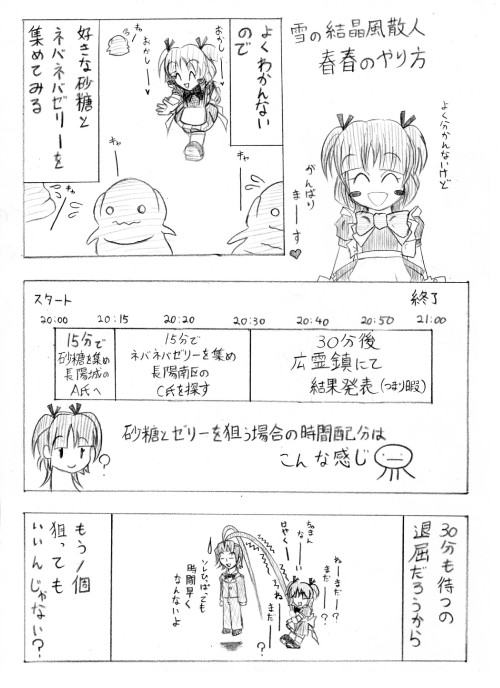 雪の結晶風散人
春春のやり方
よく分かんないけど
がんばり
まーす♥
よくわかんない
ので
おかしー♥
おかしー♥
好きな砂糖と
ネバネバゼリーを
集めてみる
キャー
キャー
キャー
スタート
終了
20:00 20:15 20:20 20:30 20:40 20:50 21:00
15分で
砂糖を集め
長陽城の
A氏へ
15分で
ネバネバゼリーを集め
長陽南区の
C氏を探す
30分後
広霊鎮にて
結果発表(つまり暇)
?
砂糖とゼリーを狙う場合の時間配分は
こんな感じ
30分も待つの
退屈だろうから
ねーまだー?
まだー?
ねー
まだー?
はやくー
ソレひっぱっても
時間早く
なんないよ
もう1個
狙っても
いいんじゃない?